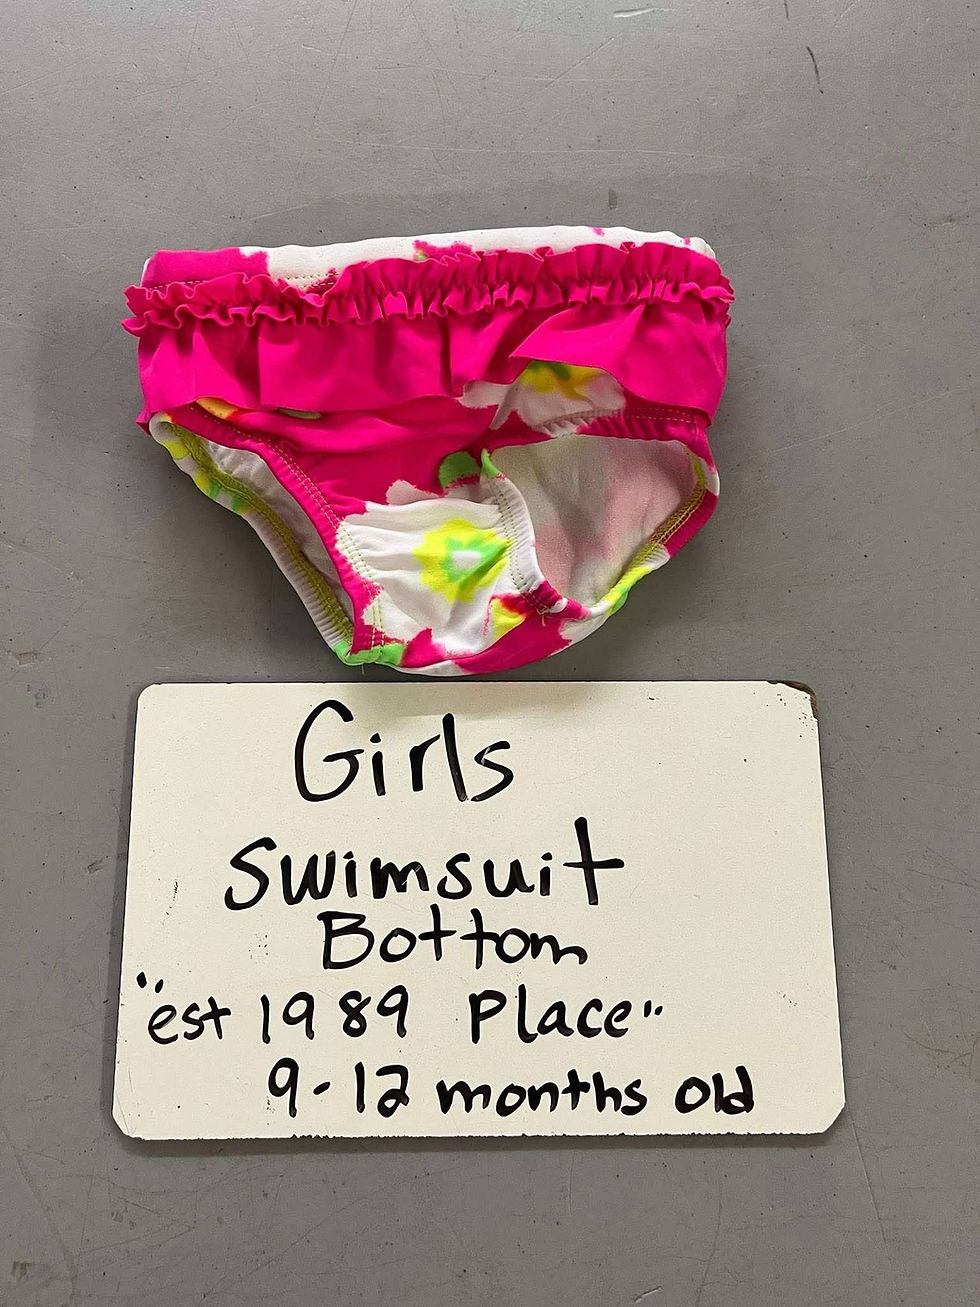 Girls
Swimsuit
Bottom
"est 1989 Place"
9-12 months old